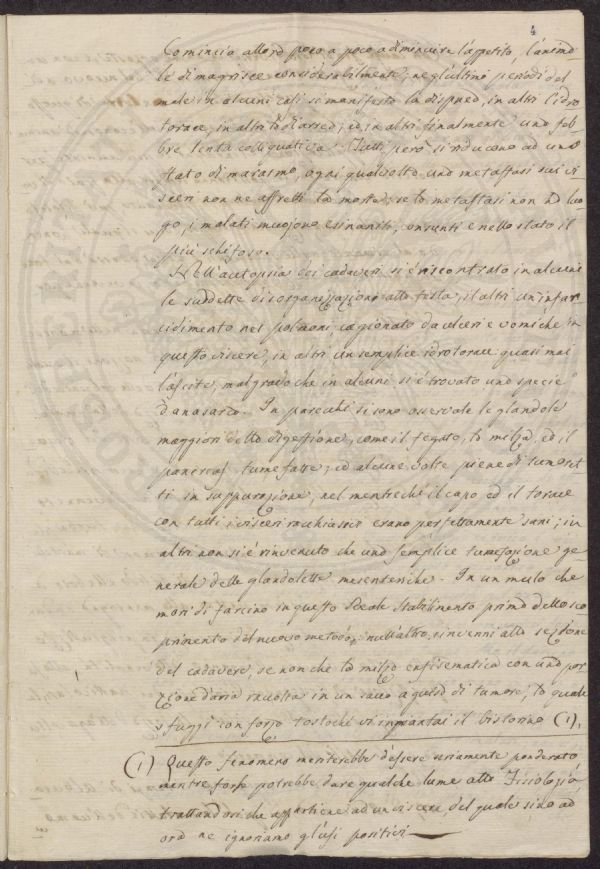 4
Comincia allora poco a poco a diminuire l'appetito, l'anima-
le dimagrisce considerabilmente, negl'ultimi periodi del
male in alcuni casi si manifesta la dispnea, in altri l'idro
torace, in altri la diarrea, ed in altri finalmente una feb-
bre lenta colliquativa. Tutti però si riducono ad uno
stato di marasmo, ogni qualvolta una metastasi sui vi
sceri non ne affretti la morte; se la metastasi non ha luo
go, i malati muojono esinaniti, consunti e nello stato il
più schifoso.
Nell'autopsia dei cadaveri si è riscontrato in alcuni
le suddette disorganizzazioni alla testa, in altri un infra-
cidimento nei polmoni, cagionato da ulceri e vomiche in
questo viscere, in altri un semplice idrotorace quasi mai
l'ascite, malgrado che in alcuni si è trovato una specie
d'anasarca. In parecchi si sono osservate le glandole
maggiori della digestione, come il fegato, la milza, ed il
pancreas tumefatte, ed alcune volte piene di tumoret-
ti in suppurazione, nel mentre che il capo ed il torace
con tutti i visceri racchiusivi erano perfettamente sani; in
altri non si è rinvenuto che una semplice tumefazione ge-
nerale delle glandolette mesenteriche. In un mulo che
morì di farcino in questo Reale Stabilimento prima dello sco
primento del nuovo metodo, null'altro rinvenni alla sezione
del cadavere, se non che la milza enfisematica con una por-
zione d'aria racolta in un sacco a guisa di tumore; la quale
sfuggì con forza tostochè vi impiantai il bistorino (1).
(1) Questo fenomeno meriterebbe d'essere seriamente ponderato
mentre forse potrebbe dare qualche lume alla Fisiologia,
trattandosi che appartiene ad un viscere, del quale sino ad
ora ne ignoriamo gl'usi positivi